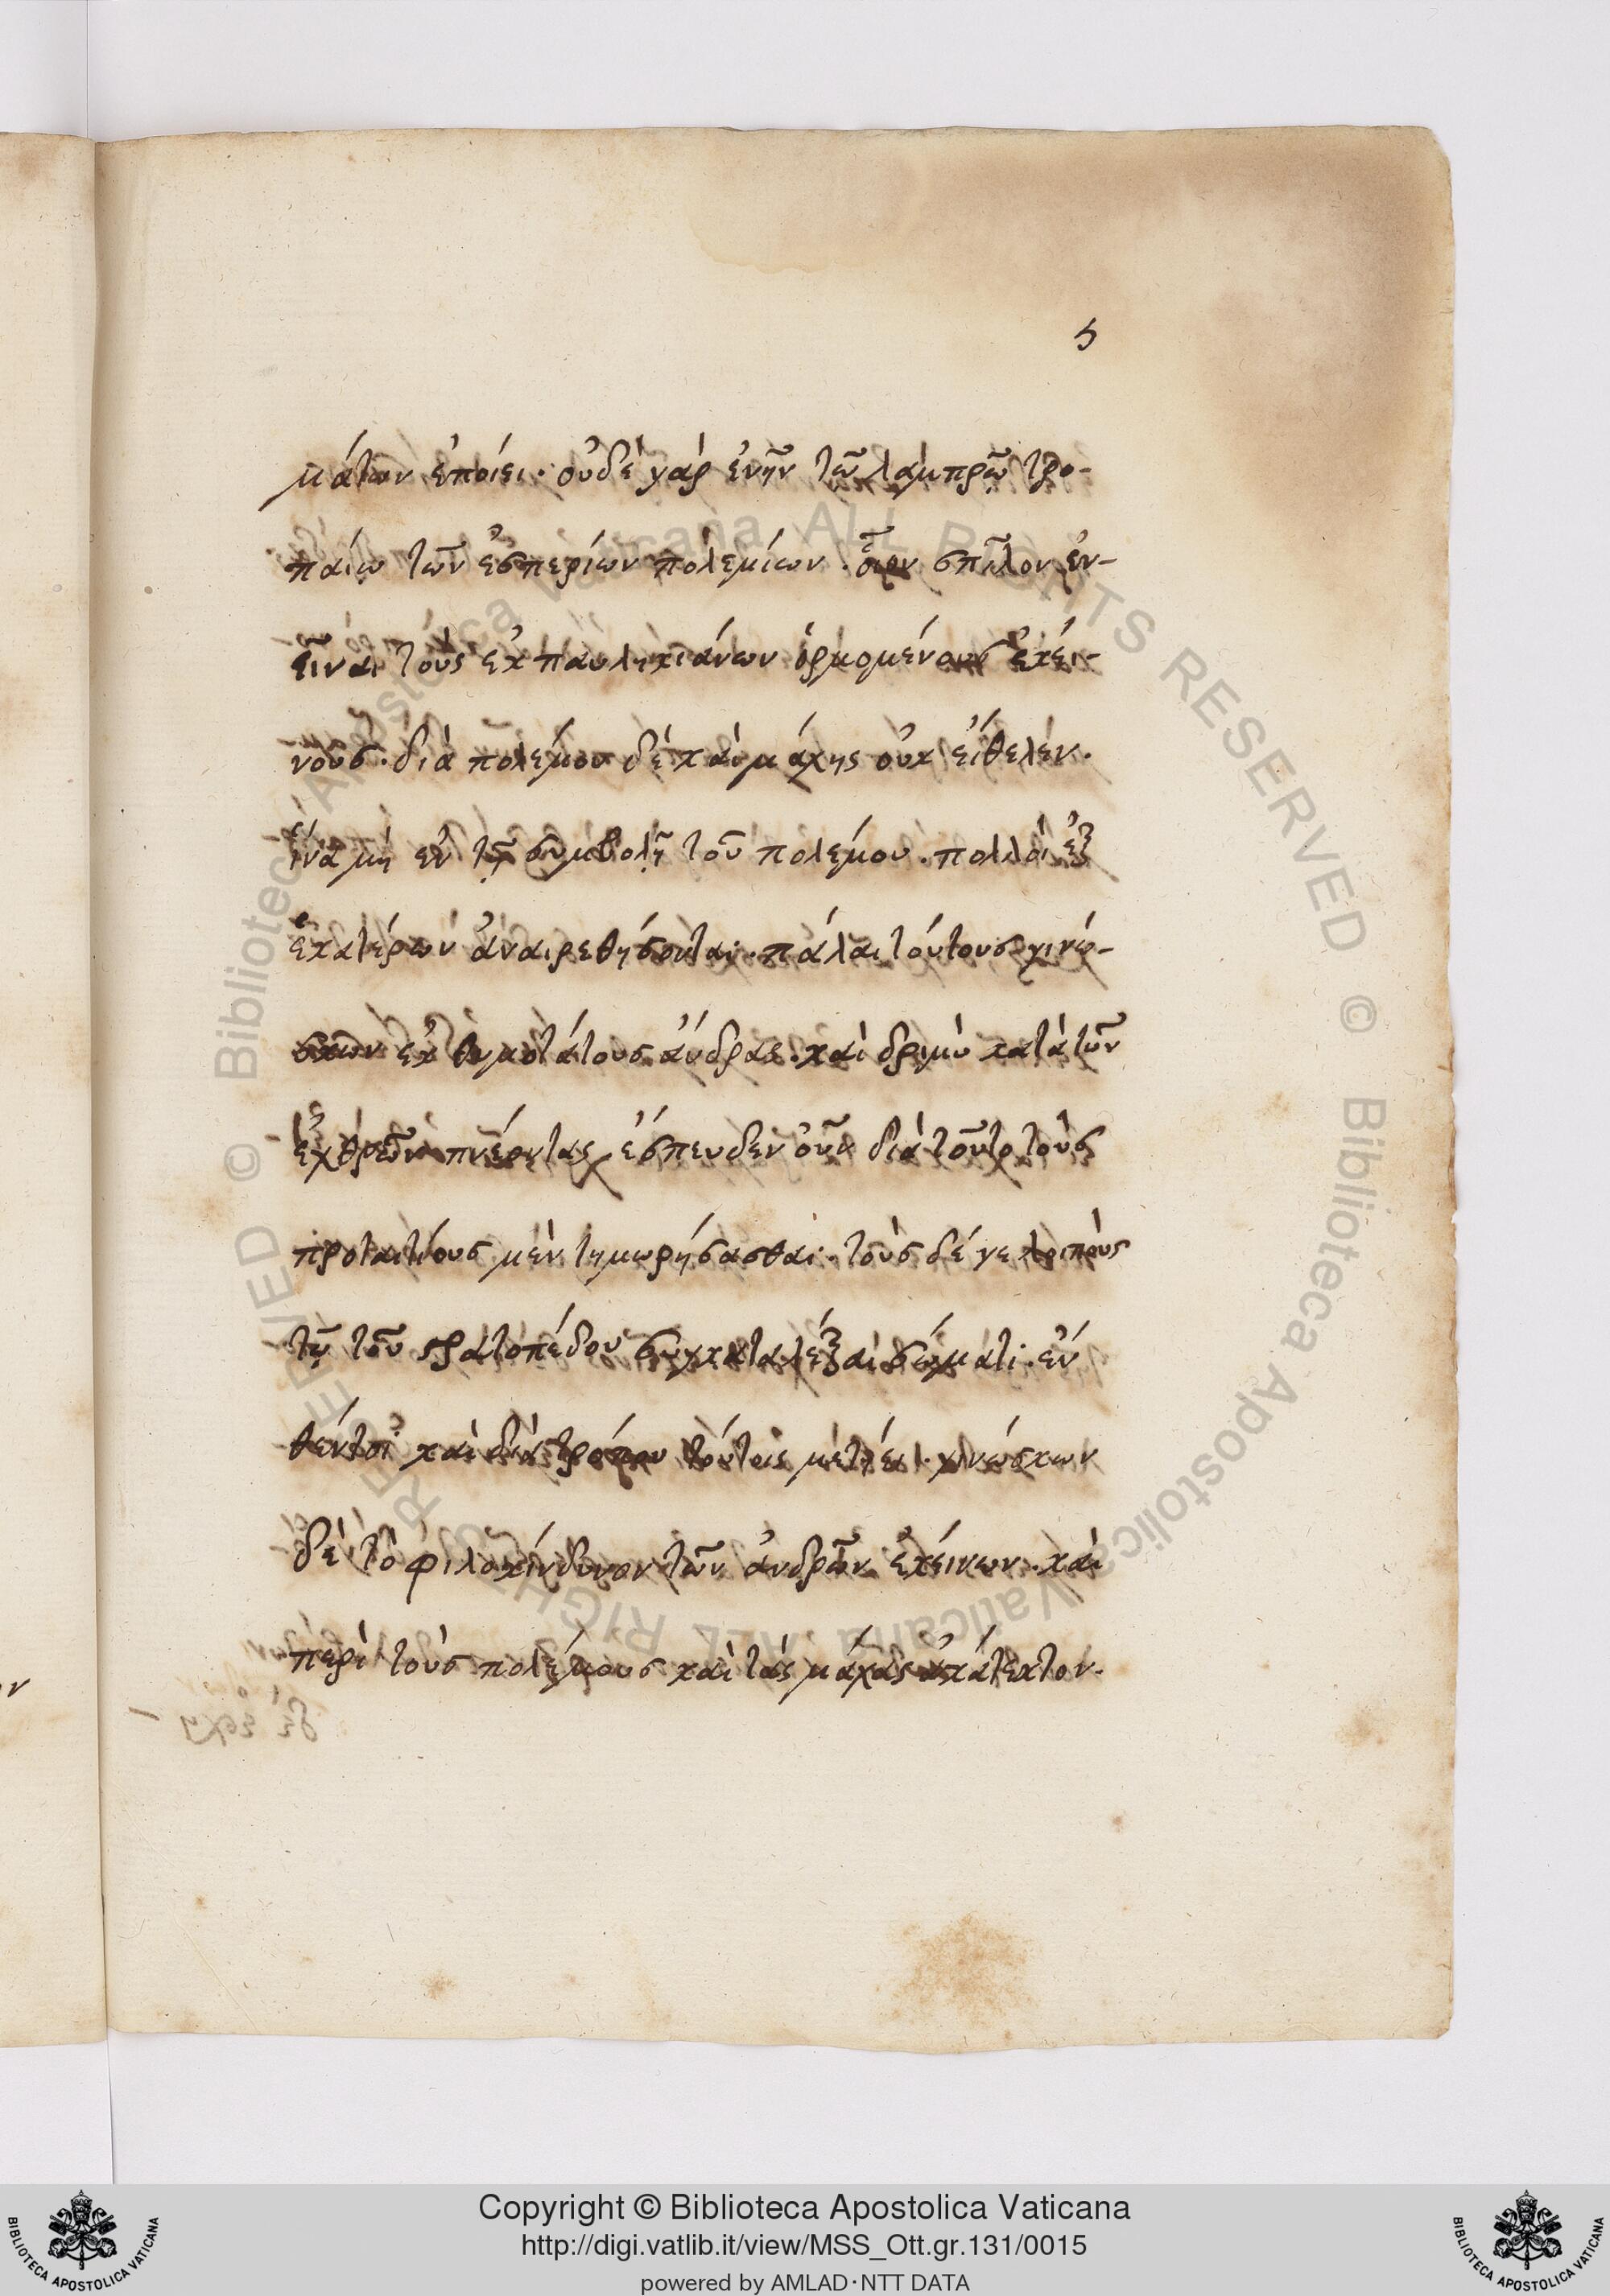 5
μάτων ἐποίει· οὐδὲ γὰρ ἐνῆν τῶ λαμπρῶ τρο-
παίω τῶν ἑσπερίων πολεμίων. οἷον σπῖλον ἐν-
τοὺς ἐκ παυλικιάνων ὁρμομένους ἐκεί-
νους. διὰ πολέμου δὲ καὶ μάχης οὐκ εἴθελεν.
ἵνα μὴ ἐν τῇ συμβολῇ τοῦ πολέμου. πολλοὶ ἐξ
ἑκατέρων ἀναιρεθήσονται. πάλαι τούτους γινώ-
σκων ἐκ θυμοτάτους ἄνδρας. καὶ δριμὺ κατὰ τῶν
ἐχθρῶν πνέοντας ἔσπευδεν οὖν διὰ τοῦτο τοὺς
προταιτίους μὲν τιμωρήσασθαι. τοὺς δέ γε λοιποὺς
τῷ τοῦ στρατοπέδου συγκαταλέξαι σώματι. ἐν
θέντοι καὶ διὰ τρόπου τούτοις μετῄει. γινώσκων
δὲ τὸ φιλοκίνδυνον τῶν ἀνδρῶν ἐκείνων. καὶ
περὶ τοὺς πολέμους καὶ τὰς μάχας ἀκάτεκτον.
Copyright © Biblioteca Apostolica Vaticana
http://digi.vatlib.it/view/MSS_Ott.gr.131/0015
powered by AMLAD·NTT DATA
BIBLIOTECA APOSTOLICA VATICANA
BIBLIOTECA APOSTOLICA VATICANA
© Biblioteca Apostolica Vaticana ALL RIGHTS RESERVED © Biblioteca Apostolica Vaticana ALL RIGHTS RESERVED